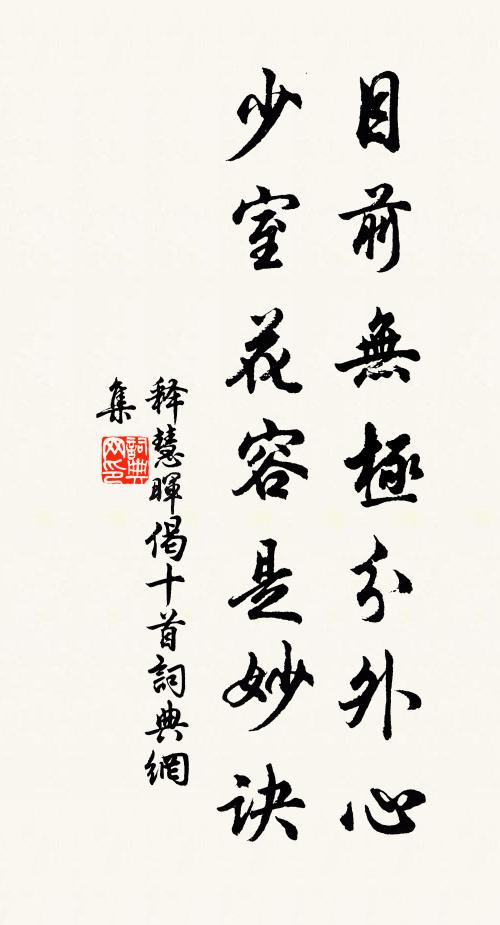 目前無極分外心
少室花容是妙訣
释慧暉偈十首詞典網
集
詞典网印